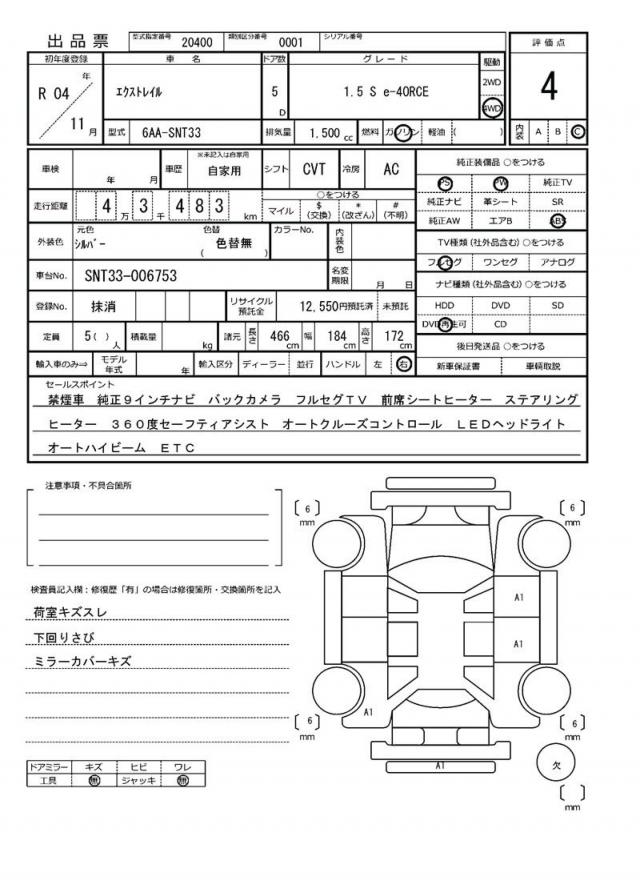 出品票 型式指定番号 20400 類別区分番号 0001 シリアル番号
評価点
4
内装 A B C
初年度登録 車名 ドア数 グレード 駆動
R 04 年 11 月 エクストレイル 5 D 1.5 S e-4ORCE 2WD 4WD
型式 6AA-SNT33 排気量 1.500 cc 燃料 ガソリン 軽油 ( )
車検 年 月 車歴 ※未記入は自家用 自家用 シフト CVT 冷房 AC
走行距離 4 万 3 千 4 8 3 km ○をつける
マイル $(交換) *(改ざん) #(不明)
外装色 元色 シルバー 色替 ( 色替無 ) カラーNo. 内装色
車台No. SNT33-006753 名変期限 月 日
登録No. 抹消 リサイクル預託金 12,550円預託済 未預託
定員 5( )人 積載量 kg 諸元 長さ 466 cm 幅 184 cm 高さ 172 cm
輸入車のみ⇒ モデル年式 年 輸入区分 ディーラー 並行 ハンドル 左 右
純正装備品 ○をつける
PS PW 純正TV
純正ナビ 革シート SR
純正AW エアB ABS
TV種類(社外品含む)○をつける
フルセグ ワンセグ アナログ
ナビ種類(社外品含む)○をつける
HDD DVD SD
DVD再生可 CD
後日発送品 ○をつける
新車保証書 車輌取説
セールスポイント
禁煙車 純正9インチナビ バックカメラ フルセグTV 前席シートヒーター ステアリング
ヒーター 360度セーフティアシスト オートクルーズコントロール LEDヘッドライト
オートハイビーム ETC
注意事項・不具合箇所
検査員記入欄:修復歴「有」の場合は修復箇所・交換箇所を記入
荷室キズスレ
下回りさび
ミラーカバーキズ
ドアミラー キズ ヒビ ワレ
工具 無 ジャッキ 無
[ 6 ] mm
[ 6 ] mm
A1
A1
A1
[ 6 ] mm
[ 6 ] mm
A1
欠
[ ] mm